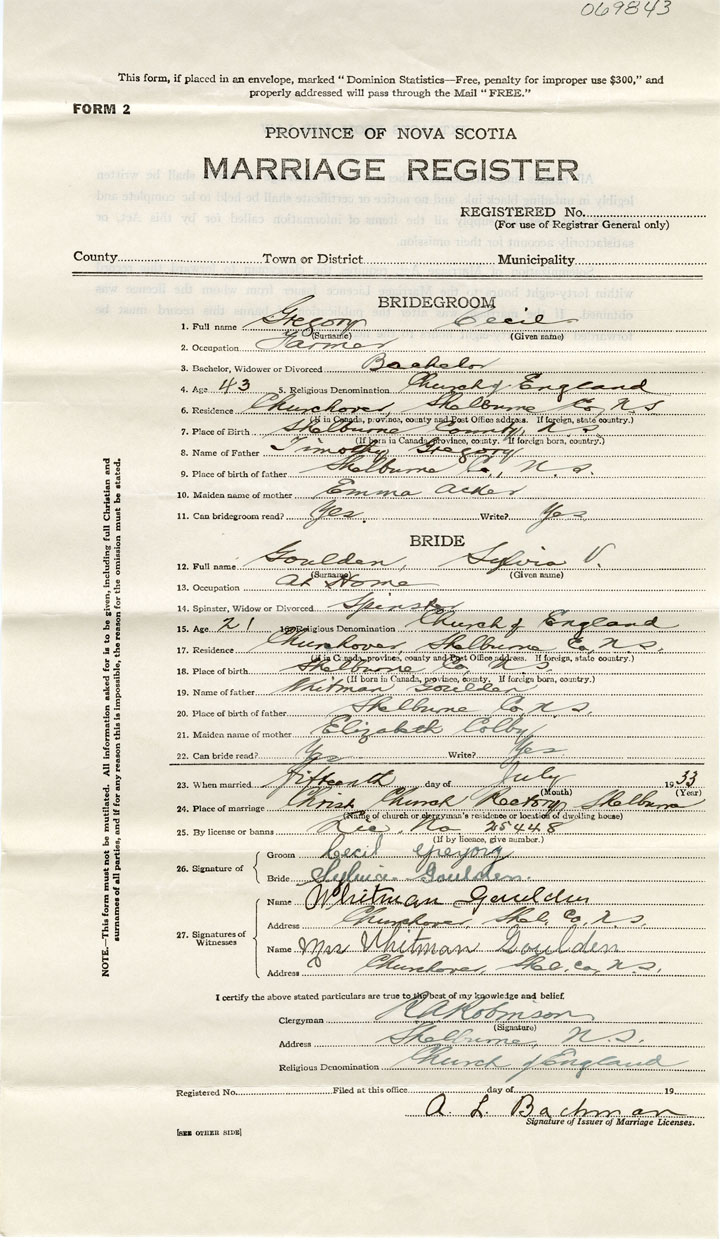 069843
This form, if placed in an envelope, marked "Dominion Statistics—Free, penalty for improper use $300," and
properly addressed will pass through the Mail "FREE."
FORM 2
PROVINCE OF NOVA SCOTIA
MARRIAGE REGISTER
REGISTERED No.
(For use of Registrar General only)
County Town or District Municipality
BRIDEGROOM
1. Full name Gregory Cecil
(Surname) (Given name)
2. Occupation Farmer
3. Bachelor, Widower or Divorced Bachelor
4. Age 43 5. Religious Denomination Church of England
6. Residence Churchover, Shelburne Co, N.S.
(If in Canada, province, county and Post Office address. If foreign, state country.)
7. Place of Birth Shelburne County, N.S.
(If born in Canada, province, county. If foreign born, country.)
8. Name of Father Timothy Gregory
9. Place of birth of father Shelburne Co., N.S.
10. Maiden name of mother Emma Acker
11. Can bridegroom read? Yes. Write? Yes
BRIDE
12. Full name Goulden, Sylvia V.
(Surname) (Given name)
13. Occupation At Home
14. Spinster, Widow or Divorced Spinster
15. Age 21 16. Religious Denomination Church of England
17. Residence Churchover, Shelburne Co, N.S.
(If in Canada, province, county and Post Office address. If foreign, state country.)
18. Place of birth Shelburne Co, N.S.
(If born in Canada, province, county. If foreign born, country.)
19. Name of father Whitman Goulden
20. Place of birth of father Shelburne Co, N.S.
21. Maiden name of mother Elizabeth Colby
22. Can bride read? Yes Write? Yes
23. When married Fifteenth day of July 1933
(Month) (Year)
24. Place of marriage Christ Church Rectory, Shelburne
(Name of church or clergyman's residence or location of dwelling house)
25. By license or banns Lic. No 25448
(If by licence, give number.)
26. Signature of
Groom Cecil Gregory
Bride Sylvia Goulden
27. Signatures of Witnesses
Name Whitman Goulden
Address Churchover, Shel. Co, N.S.
Name Mrs Whitman Goulden
Address Churchover, Shel. Co, N.S.
I certify the above stated particulars are true to the best of my knowledge and belief.
Clergyman R A Robinson
(Signature)
Address Shelburne, N.S.
Religious Denomination Church of England
Registered No. Filed at this office day of 19
A. L. Bachman
Signature of Issuer of Marriage Licenses.
[SEE OTHER SIDE]
NOTE.—This form must not be mutilated. All information asked for is to be given, including full Christian and
surnames of all parties, and if for any reason this is impossible, the reason for the omission must be stated.